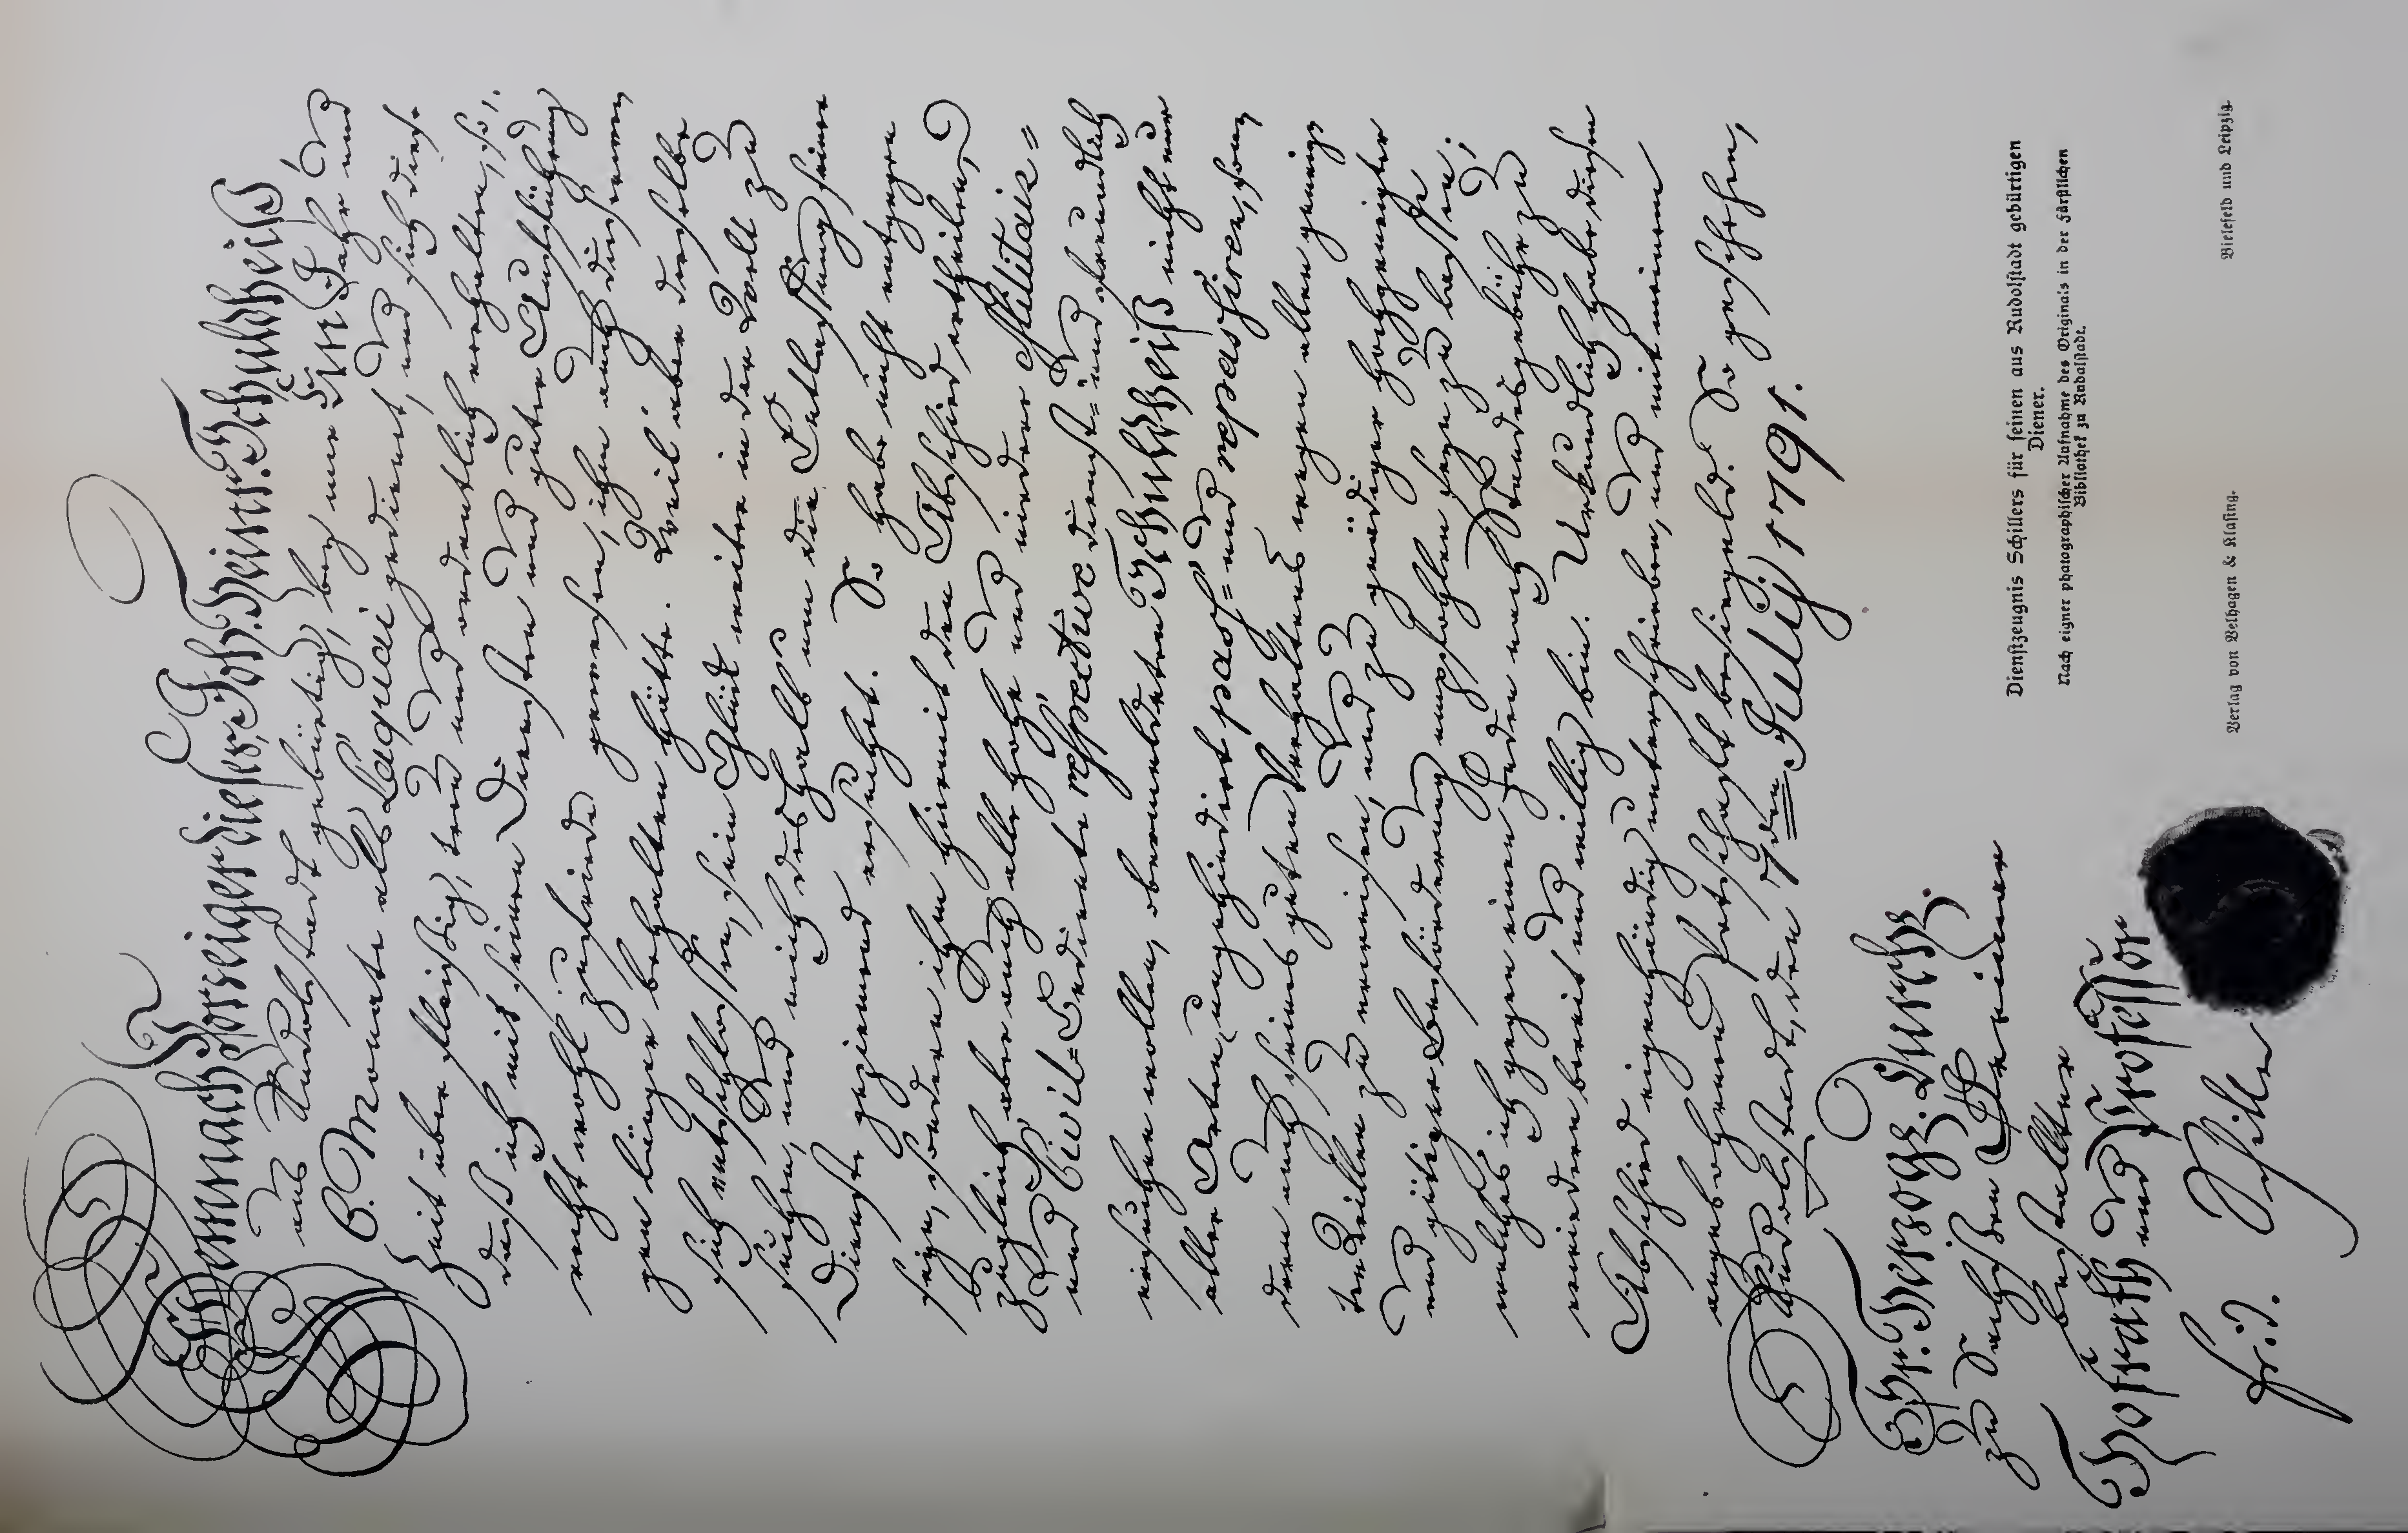 Demnach Vorzeiger dieses, Joh. Heinr. Schultheiß
aus Rudolstadt gebürtig, bey mir Ein Jahr und
6. Monate als Laquai gedienet, und sich diese
Zeit über fleissig, treu und ordentlich verhalten, so,
daß ich mit seinen Diensten und guter Aufführung
recht wohl zufrieden gewesen, ihn auch
gern länger behalten hätte. Weil aber derselbe
sich entschlossen, sein Glük weiter in der Welt zu
suchen, und mich deshalb um die Entlassung seiner
Dienste geziemend ersuchet. So habe nicht entgegen
seyn, sondern ihm hiermit den Abschied ertheilen,
zugleich aber auch alle hohe und niedere Militair-
und Civil-Bediente respective dienst- und freundlich
ersuchen wollen, obermeldeten Schultheiß nicht nur
aller Orten ungehindert pass- und repassiren, son
dern auch seines guten Verhaltens wegen allen geneig
ten Willen zu erweisen, und zu gnädiger hochgeneigter
und gütiger Beförderung empfohlen seyn zu lassen;
welches ich gegen einen Jeden nach Standesgebühr zu
erwiedern bereit und willig bin. Urkundlich habe diesen
Abschied eigenhändig unterschrieben, und mit meinem
angebohrnen Petschaft besiegeld. So geschehen,
Rudolstadt, den 7den Julij 1791.
Hr. Herzogl. Durchl.
zu Sachßen Weimar
bestallter
Hofrath und Professor
Frid. Schiller
Dienstzeugnis Schillers für seinen aus Rudolstadt gebürtigen
Diener.
Nach eigner photographischer Aufnahme des Originals in der Fürstlichen
Bibliothek zu Rudolstadt.
Verlag von Velhagen & Klasing. Bielefeld und Leipzig.